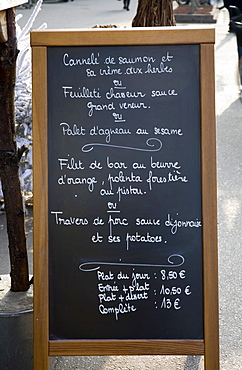 Cannelé de saumon et
sa crème aux herbes
ou
Feuilleté chasseur sauce
grand veneur.
ou
Palet d'agneau au sesame
Filet de bar au beurre
d'orange, polenta forestière
au pistou.
ou
Travers de porc sauce dijonnaise
et ses potatoes.
Plat du jour : 8,50 €
Entrée + plat
Plat + désert : 10,50 €
Complète : 13 €